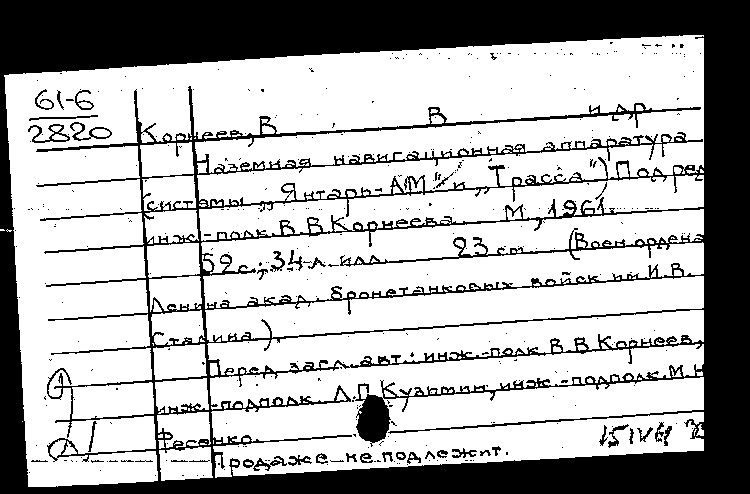 61-6
2820
Корнеев, В В и др.
Наземная навигационная аппаратура
(системы „Янтарь-АМ" и „Трасса") Под ред
инж.-полк. В.В Корнеева. М., 1961.
52 с.; 34 л. илл. 23 см. (Воен. ордена
Ленина акад. бронетанковых войск им И.В.
Сталина).
Перед загл. авт.: инж.-полк В.В Корнеев,
инж.-подполк. Л.П Кузьмин, инж.-подполк. М.Н
Фесенко.
Продаже не подлежит.